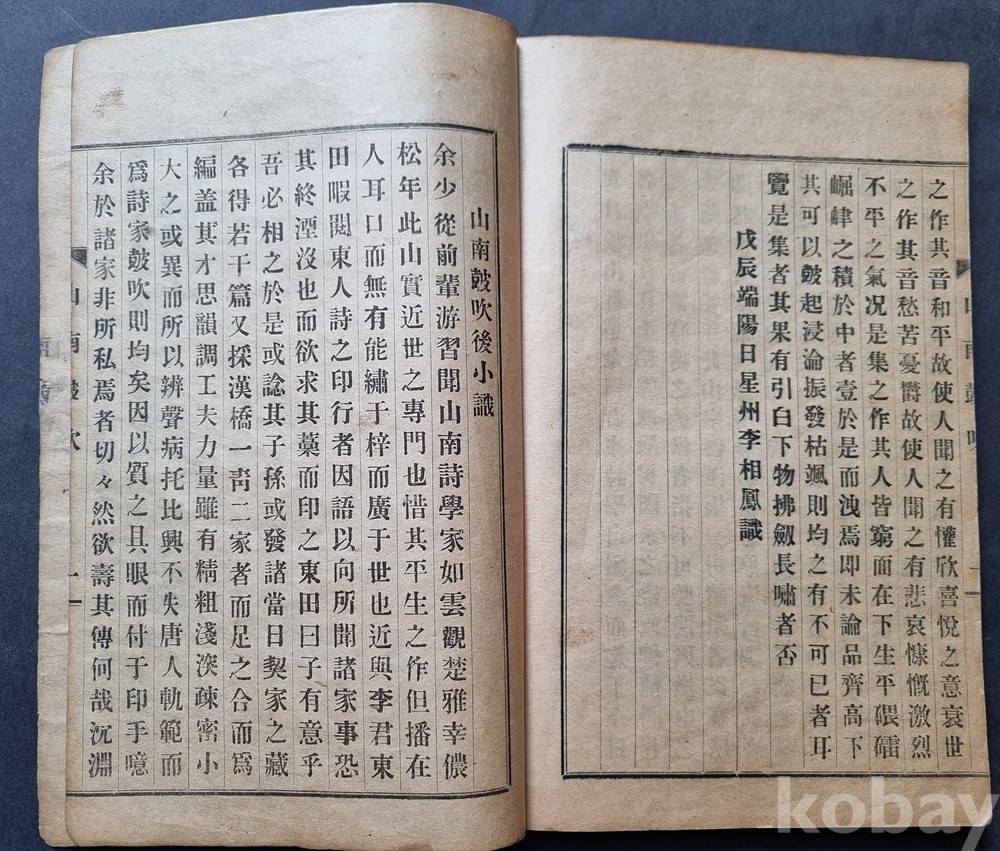 之作其音和平故使人聞之有懽欣喜悅之意衰世
之作其音愁苦憂欝故使人聞之有悲哀慷慨激烈
不平之氣况是集之作其人皆窮而在下生平磈礌
崛嵂之積於中者壹於是而洩焉即未論品齊高下
其可以皷起浸淪振發枯颯則均之有不可已者耳
覽是集者其果有引臼下物拂劒長嘯者否
戊辰端陽日星州李相鳳識
山南皷吹後小識
余少從前輩游習聞山南詩學家如雲觀楚雅幸儂
松年此山實近世之專門也惜其平生之作但播在
人耳口而無有能繡于梓而廣于世也近與李君東
田暇閱東人詩之印行者因語以向所聞諸家事恐
其終湮沒也而欲求其藁而印之東田曰子有意乎
吾必相之於是或諗其子孫或發諸當日契家之藏
各得若干篇又採漢橋一靑二家者而足之合而爲
編盖其才思韻調工夫力量雖有精粗淺深疎密小
大之或異而所以辨聲病托比興不失唐人軌範而
爲詩家皷吹則均矣因以質之具眼而付于印手噫
余於諸家非所私焉者切々然欲壽其傳何哉沉淵
山南皷吹
一
kobay